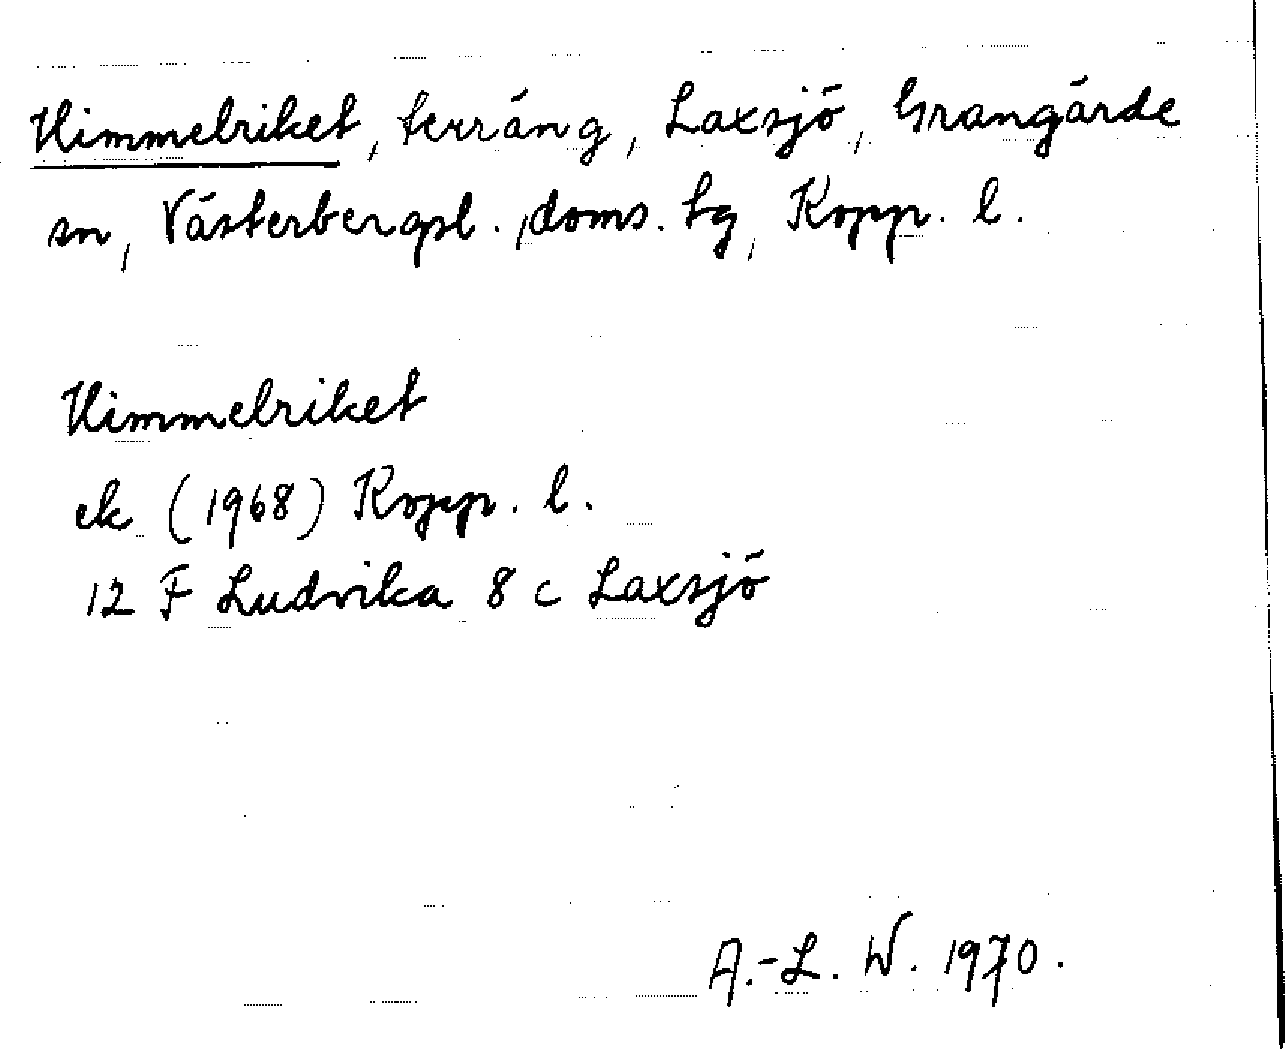 Himmelriket, terräng, Laxsjö, Grangärde
sn, Västerbergsl., doms. tg, Kopp. l.
Himmelriket
ek (1968) Kopp. l.
12 F Ludvika 8 c Laxsjö
A.-L. W. 1970.